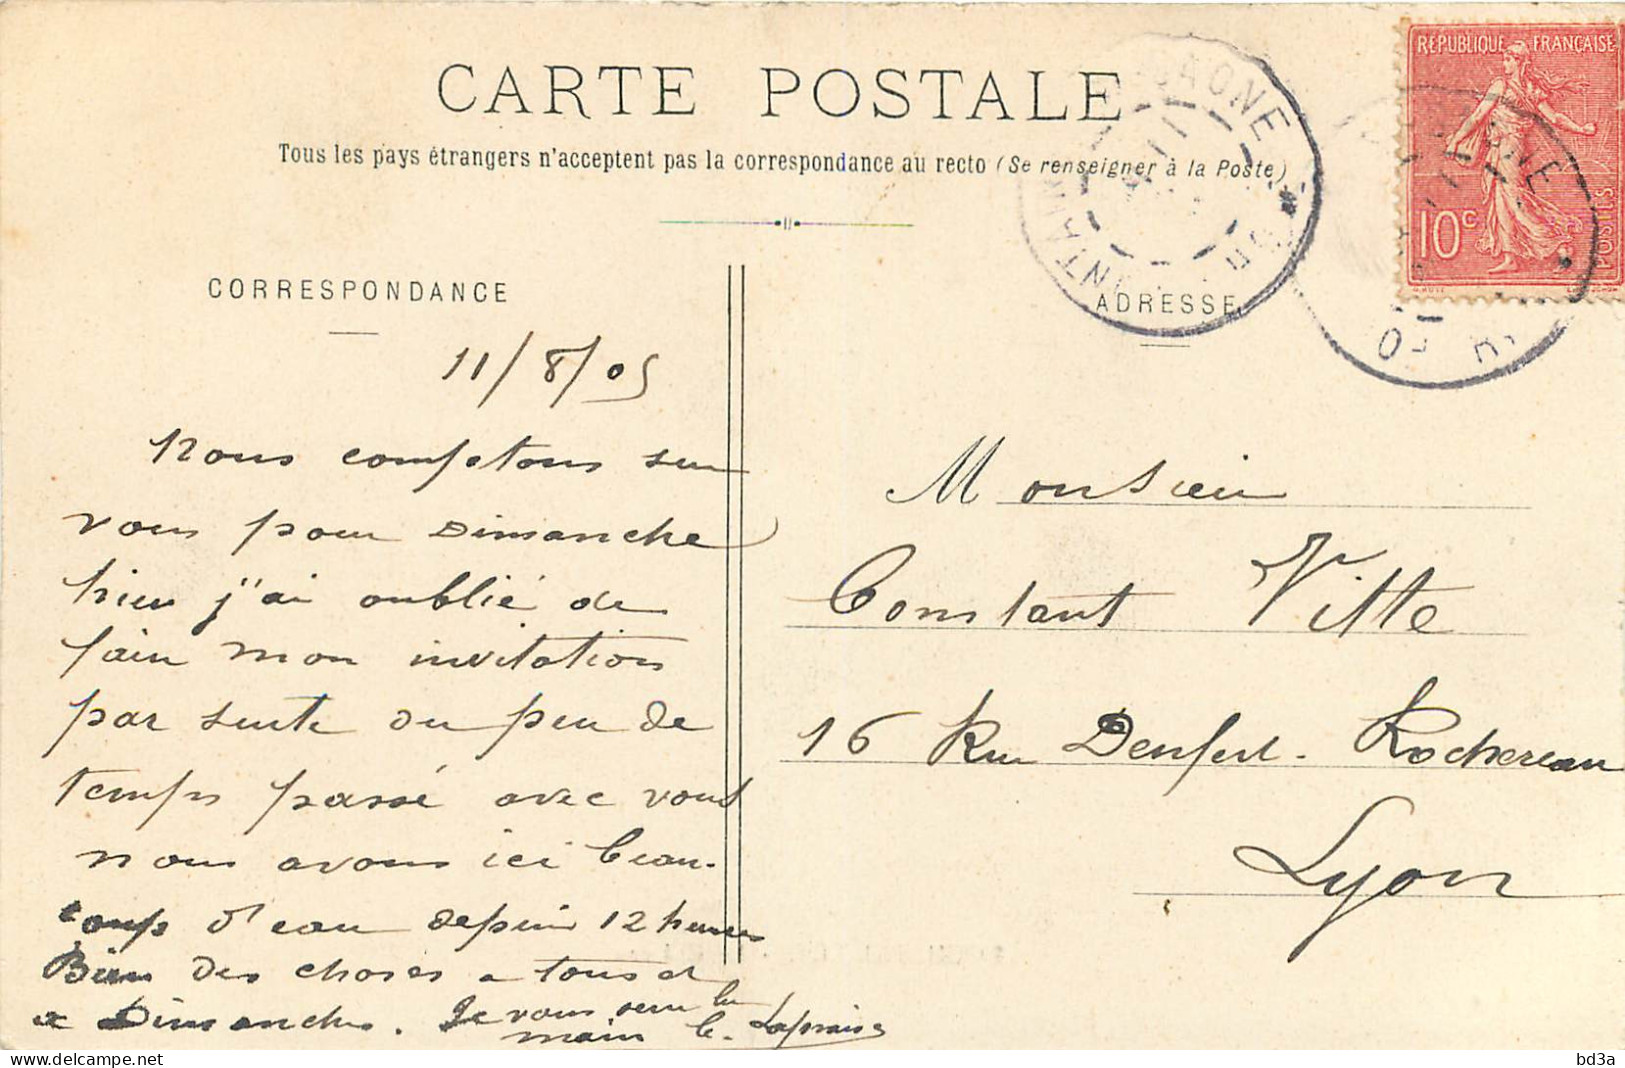 CARTE POSTALE
Tous les pays étrangers n'acceptent pas la correspondance au recto (Se renseigner à la Poste)
REPUBLIQUE FRANÇAISE
10c
POSTES
CORRESPONDANCE
ADRESSE
11/8/05
Nous comptons sur
vous pour Dimanche
hier j'ai oublié de
faire mon invitation
par suite du peu de
temps passé avec vous
nous avons ici beau-
coup d'eau depuis 12 heures
Bien des choses a tous et
a Dimanche. Je vous serre la
main
Monsieur
Constant Vitte
16 Rue Denfert-Rochereau
Lyon
bd3a